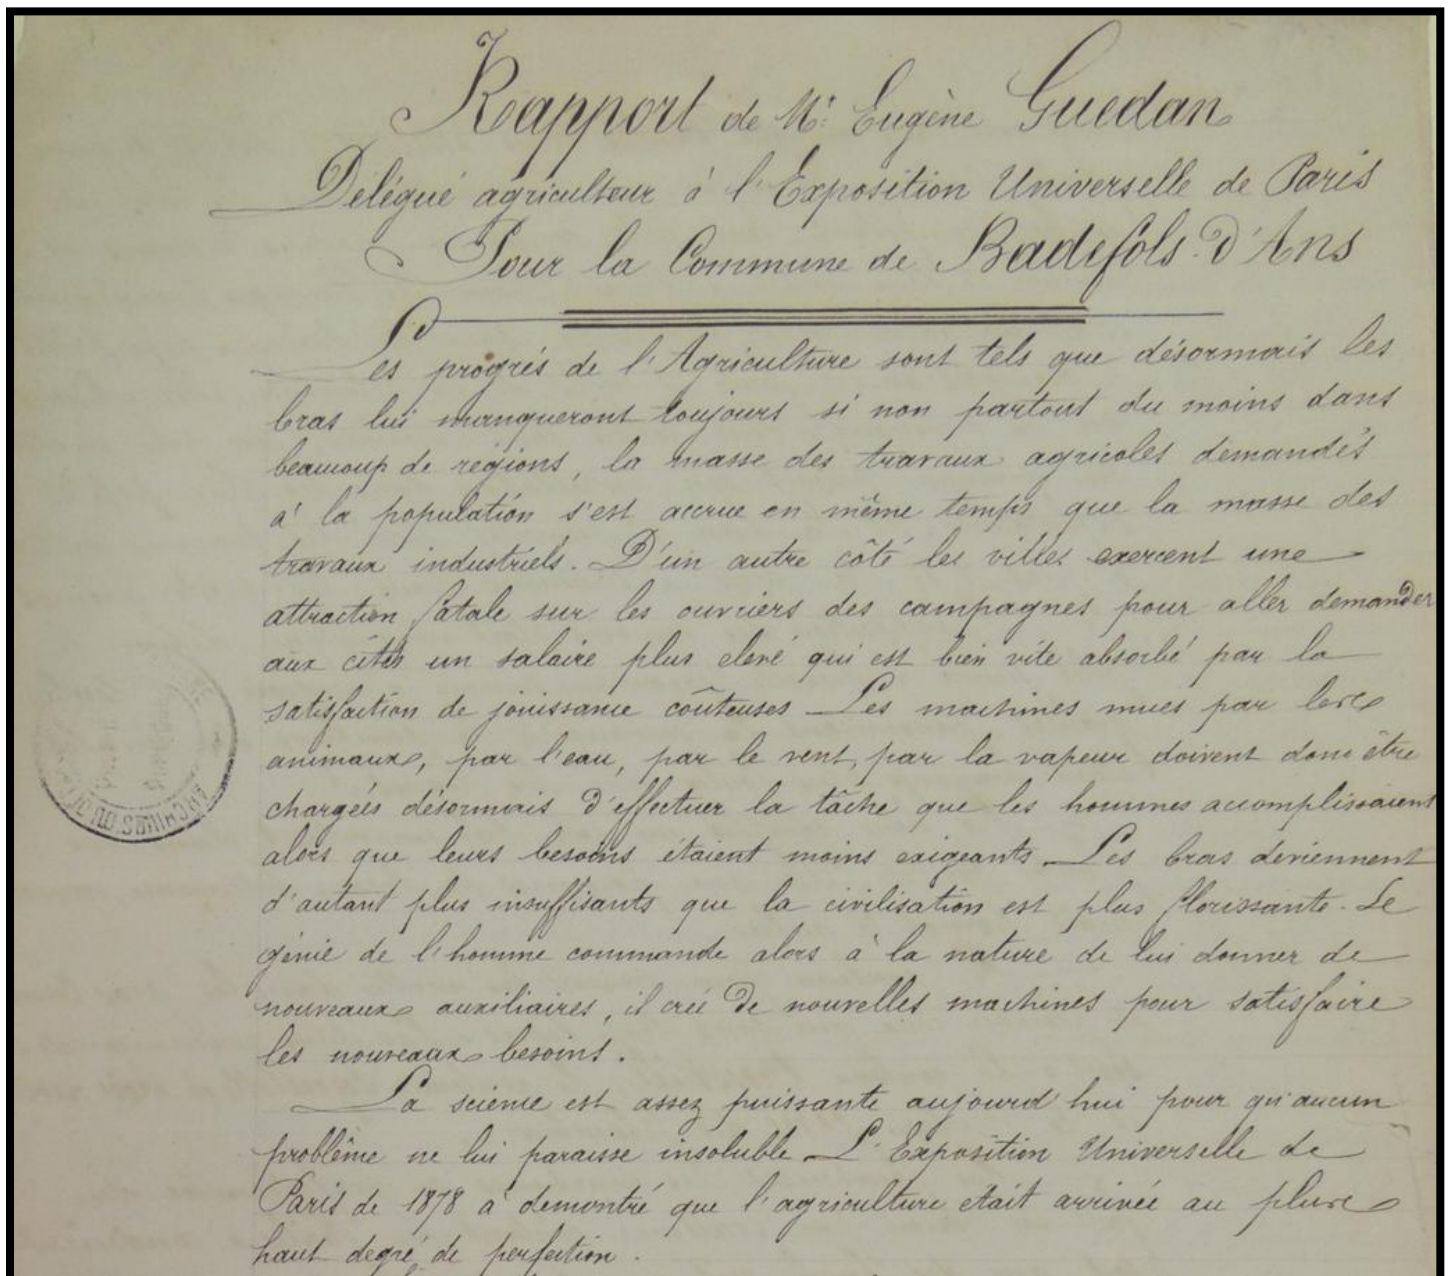 Rapport de Mr. Eugène Guedan
Délégué agriculteur à l'Exposition Universelle de Paris
Pour la Commune de Badefols-D'Ans
Les progrès de l'Agriculture sont tels que désormais les
bras lui manqueront toujours si non partout du moins dans
beaucoup de régions, la masse des travaux agricoles demandés
à la population s'est accrue en même temps que la masse des
travaux industriels. D'un autre côté les villes exercent une
attraction fatale sur les ouvriers des campagnes pour aller demander
aux cités un salaire plus elevé qui est bien vite absorbé par la
satisfaction de jouissance coûteuses Les machines mues par les
animaux, par l'eau, par le vent, par la vapeur doivent donc être
chargées désormais d'effectuer la tâche que les hommes accomplissaient
alors que leurs besoins étaient moins exigeants. Les bras deviennent
d'autant plus insuffisants que la civilisation est plus florissante. Le
génie de l'homme commande alors à la nature de lui donner de
nouveaux auxiliaires, il crée de nouvelles machines pour satisfaire
les nouveaux besoins.
La science est assez puissante aujourd'hui pour qu'aucun
problême ne lui paraisse insoluble. L'Exposition Universelle de
Paris de 1878 à demontré que l'agriculture était arrivée au plus
haut degré de perfection.
ARCHIVES DU